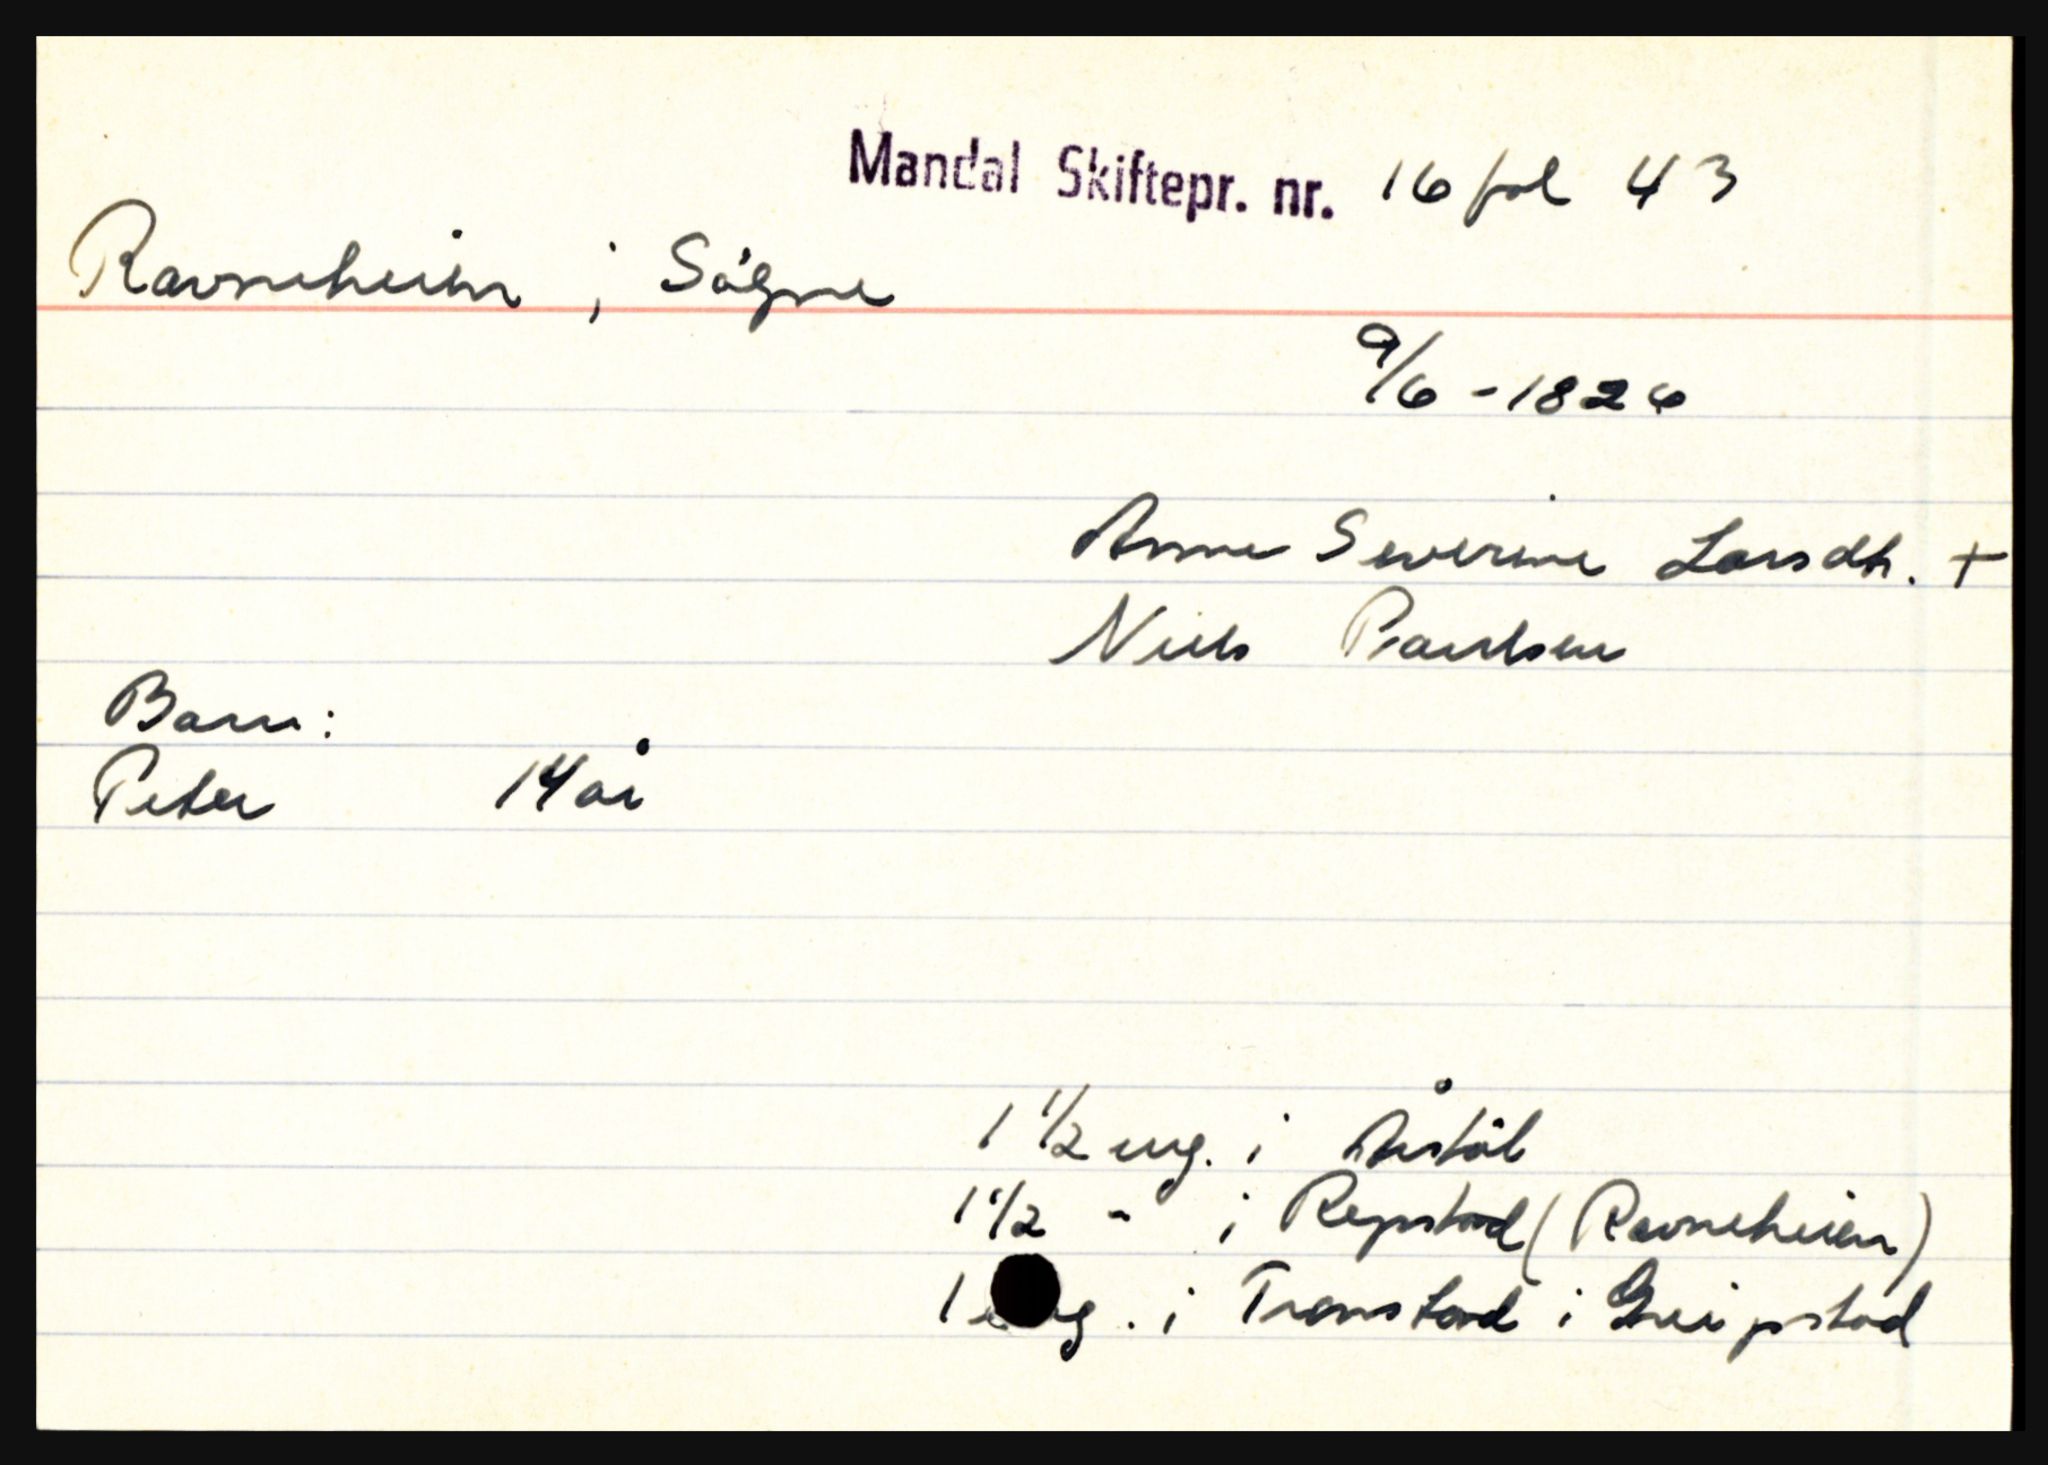 Mandal Skiftepr. nr. 16 fol 43
Ravneheien i Sögne
9/6 - 1826
Anne Severine Larsdtr. +
Niels Paulsen
Barn:
Peter 14 år
1 1/2 eng. i Årstöl
1 1/2 " i Repstad (Ravneheien)
1 eng. i Tronstad i Greipstad